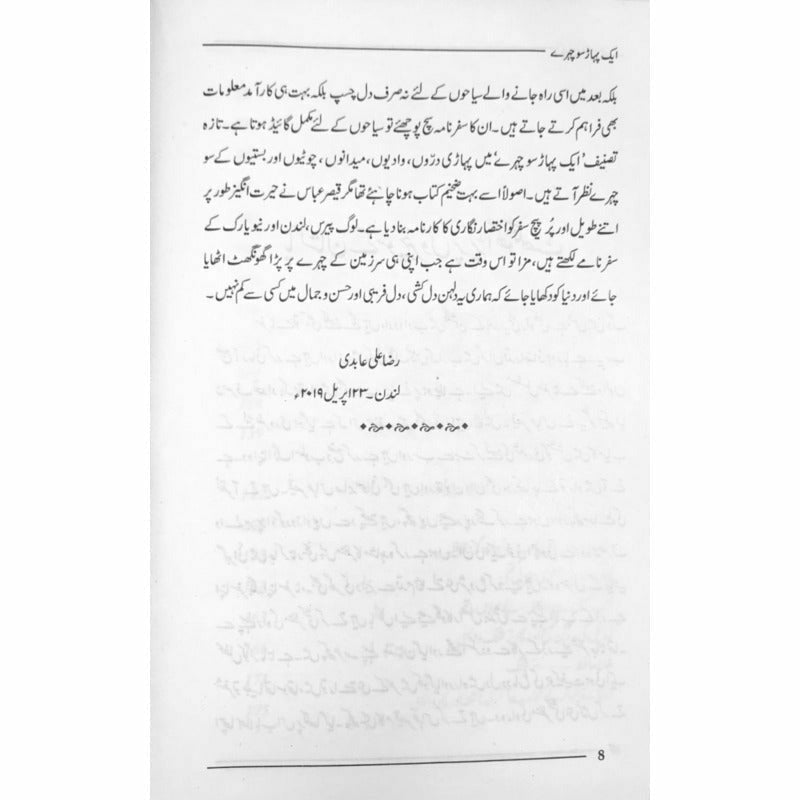 ایک پہاڑ سو چہرے
بلکہ بعد میں اسی راہ جانے والے سیاحوں کے لئے نہ صرف دل چسپ بلکہ بہت ہی کارآمد معلومات
بھی فراہم کرتے جاتے ہیں۔ ان کا سفر نامہ سچ پوچھئے تو سیاحوں کے لئے مکمل گائیڈ ہوتا ہے۔ تازہ
تصنیف 'ایک پہاڑ سو چہرے' میں پہاڑی درّوں، وادیوں، میدانوں، چوٹیوں اور بستیوں کے سو
چہرے نظر آتے ہیں۔ اصولاً اسے بہت ضخیم کتاب ہونا چاہئے تھا مگر قیصر عباس نے حیرت انگیز طور پر
اتنے طویل اور پُر پیچ سفر کو اختصار نگاری کا کارنامہ بنا دیا ہے۔ لوگ پیرس، لندن اور نیویارک کے
سفر نامے لکھتے ہیں، مزا تو اس وقت ہے جب اپنی ہی سرزمین کے چہرے پر پڑا گھونگھٹ اٹھایا
جائے اور دنیا کو دکھایا جائے کہ ہماری یہ دلہن دل کشی، دل فریبی اور حسن و جمال میں کسی سے کم نہیں۔
رضا علی عابدی
لندن۔ ۲۳ اپریل ۲۰۱۹ء
8